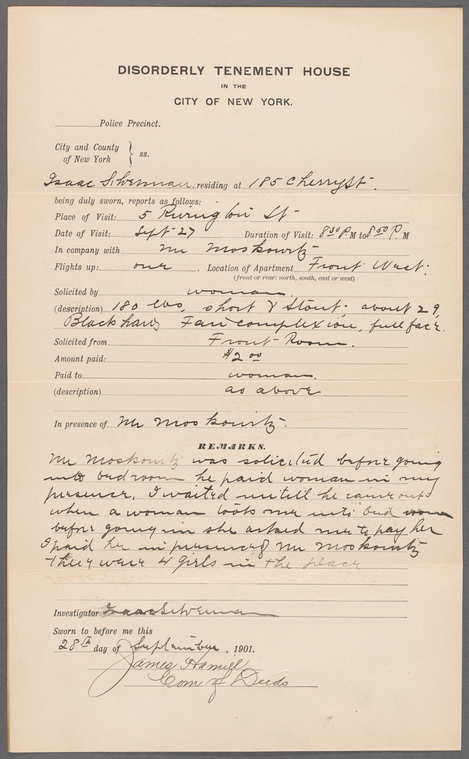 DISORDERLY TENEMENT HOUSE
IN THE
CITY OF NEW YORK.
Police Precinct.
City and County
of New York } ss.
Isaac Silverman residing at 185 Cherry St.
being duly sworn, reports as follows:
Place of Visit: 5 St
Date of Visit: Sept 27 Duration of Visit: 8 30 P M to 8 50 P. M
In company with Mr Moskowitz
Flights up: one. Location of Apartment Front West.
(front or rear: north, south, east or west)
Solicited by woman.
(description) 180 lbs, short & Stout. about 29,
Black hair, Fair complexion, full face.
Solicited from Front Room.
Amount paid: $2.00
Paid to woman.
(description) as above
In presence of Mr Moskowitz.
REMARKS.
Mr Moskowitz was solicited before going
into bedroom he paid woman in my
presence, I waited untill he came out
when a woman took me into bed room
before going in she asked me to pay her
I paid her in presence of Mr Moskowitz
there were 4 girls in the place
Investigator Isaac Silverman
Sworn to before me this
28th day of September, 1901.
James Hamill
Com of Deeds